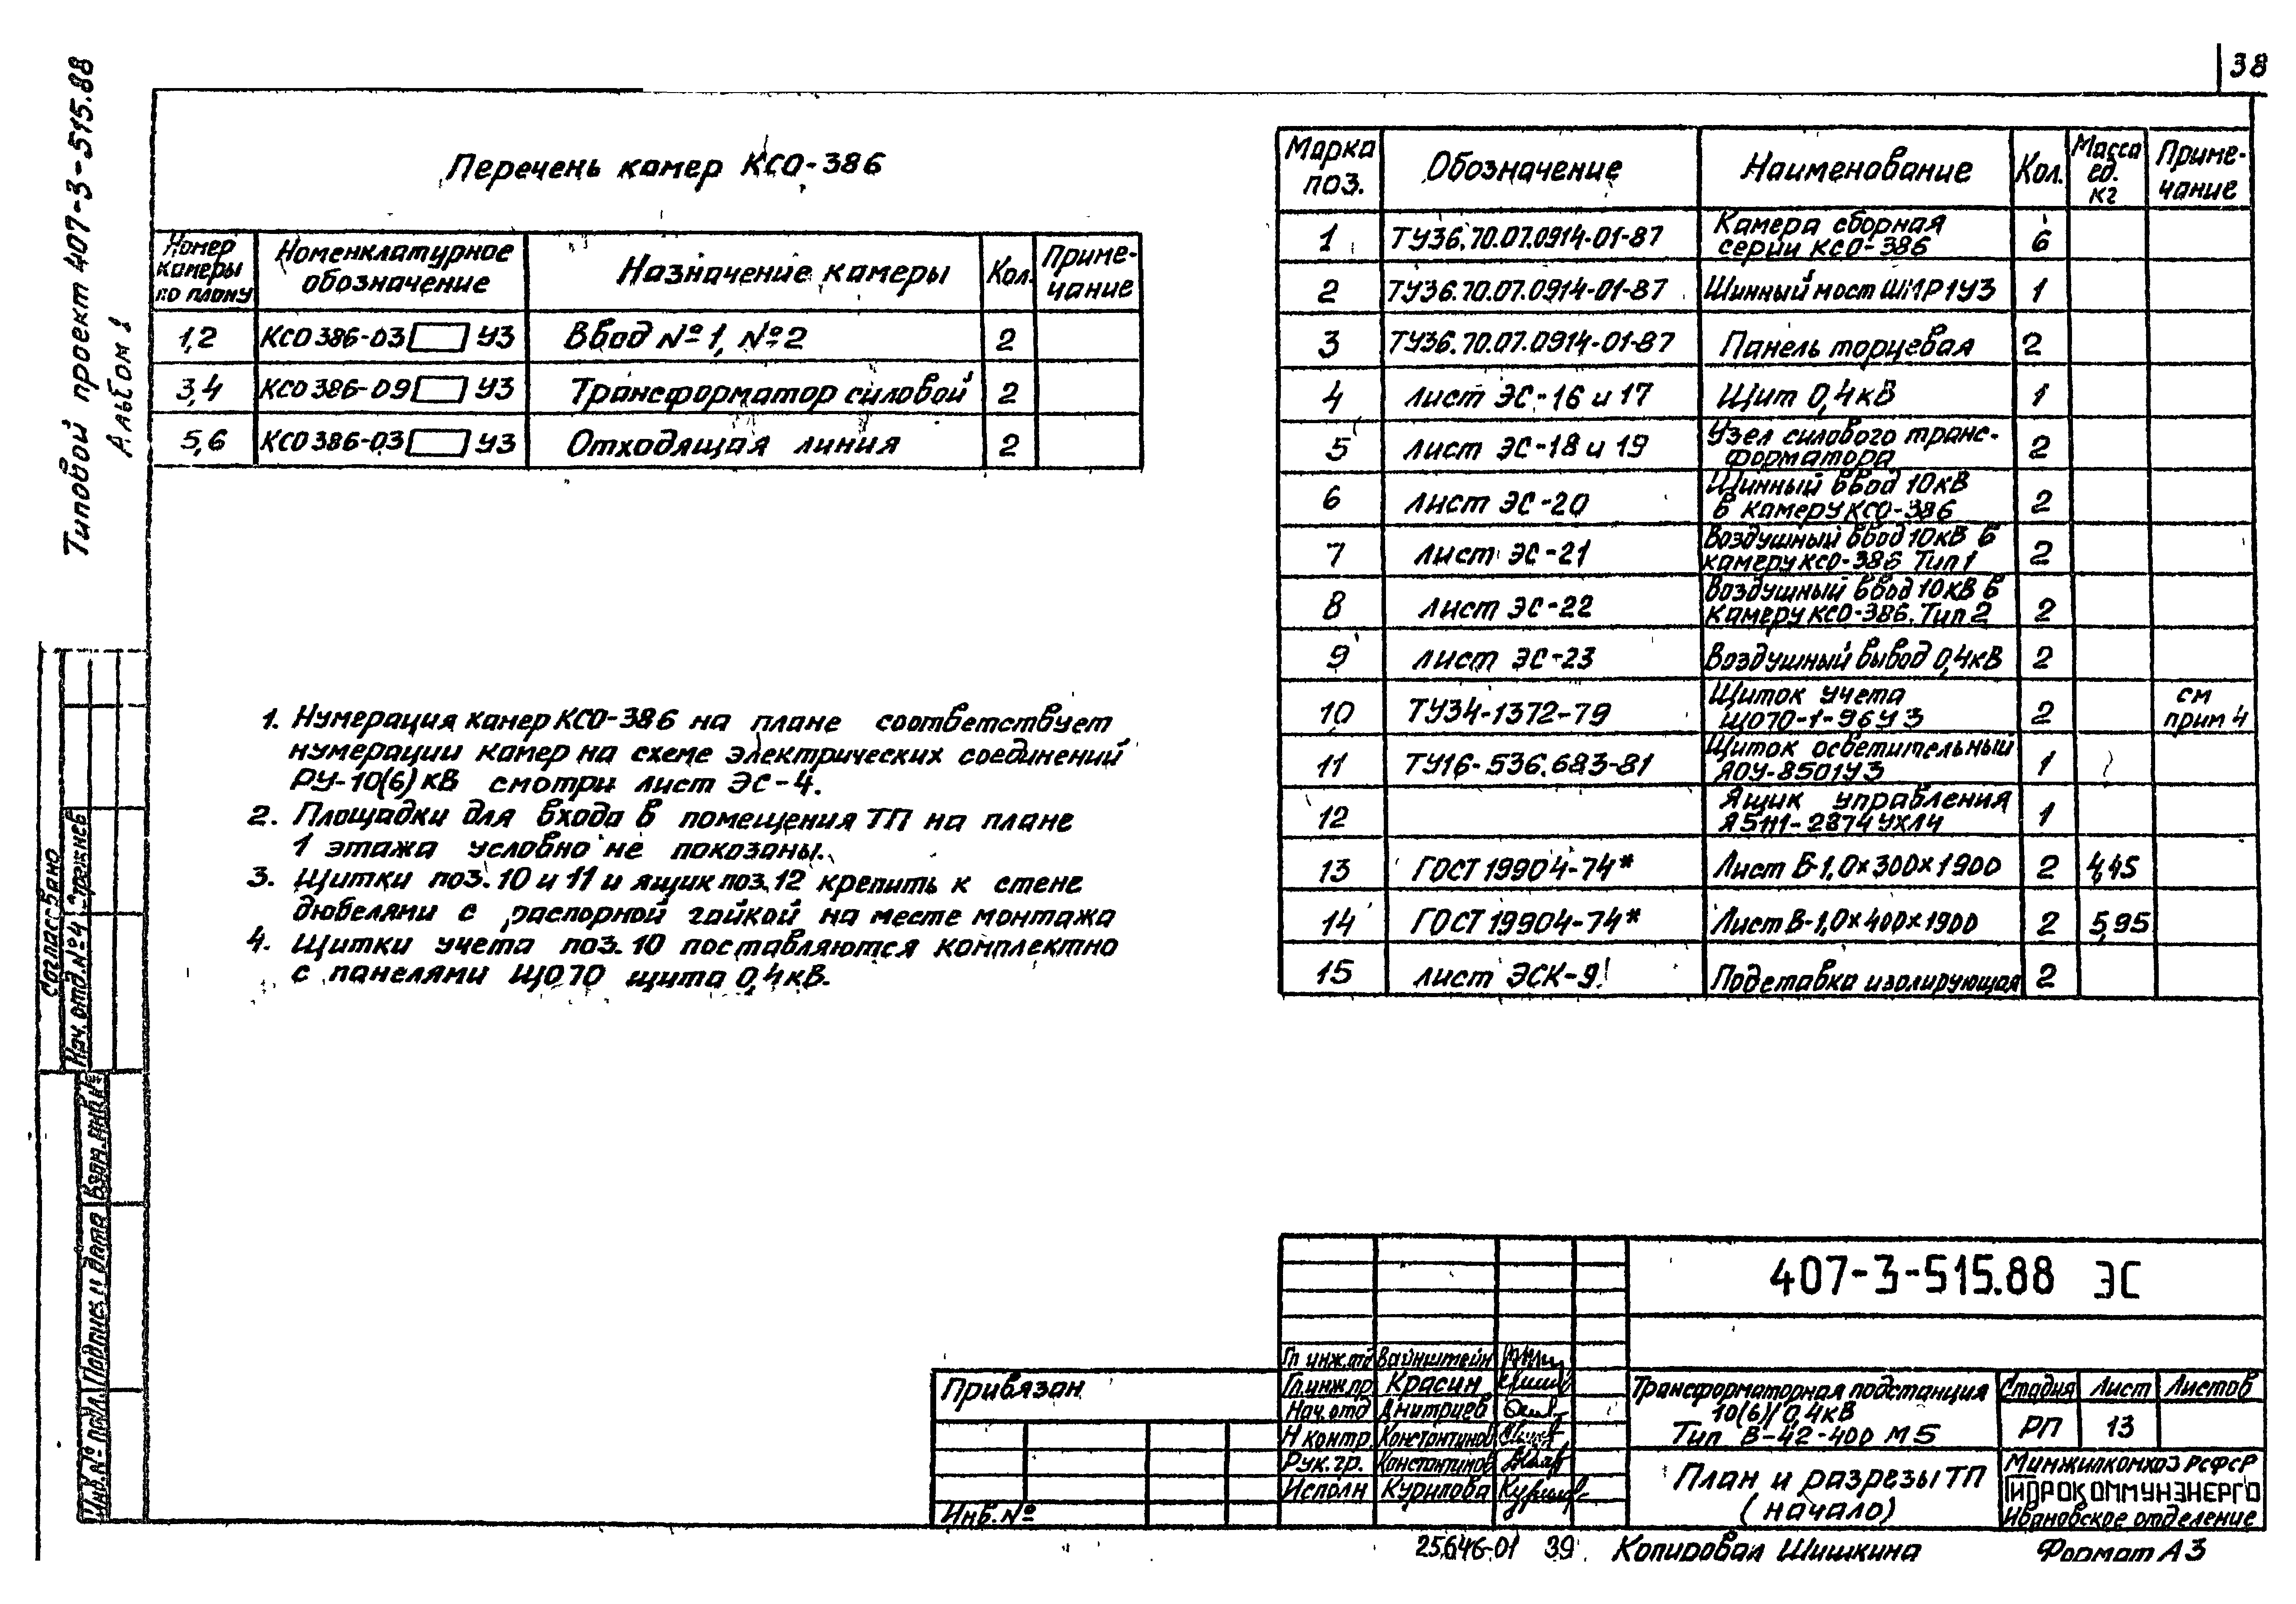 38
Типовой проект 407-3-515.88
Альбом 1
Перечень камер КСО-386
Номер камеры по плану | Номенклатурное обозначение | Назначение камеры | Кол. | Приме-чание
1,2 | КСО 386-03 У3 | Ввод №1, №2 | 2
3,4 | КСО 386-09 У3 | Трансформатор силовой | 2
5,6 | КСО 386-03 У3 | Отходящая линия | 2
1. Нумерация камер КСО-386 на плане соответствует
нумерации камер на схеме электрических соединений
РУ-10(6)кВ смотри лист ЭС-4.
2. Площадки для входа в помещения ТП на плане
1 этажа условно не показаны.
3. Щитки поз.10 и 11 и ящик поз.12 крепить к стене
дюбелями с распорной гайкой на месте монтажа
4. Щитки учета поз.10 поставляются комплектно
с панелями ЩО70 щита 0,4кВ.
Марка поз. | Обозначение | Наименование | Кол. | Масса ед. кг | Приме-чание
1 | ТУ36.70.07.0914-01-87 | Камера сборная серии КСО-386 | 6
2 | ТУ36.70.07.0914-01-87 | Шинный мост ШМР1У3 | 1
3 | ТУ36.70.07.0914-01-87 | Панель торцевая | 2
4 | лист ЭС-16 и 17 | Щит 0,4кВ | 1
5 | лист ЭС-18 и 19 | Узел силового транс-форматора | 2
6 | лист ЭС-20 | Шинный ввод 10кВ в камеру КСО-386 | 2
7 | лист ЭС-21 | Воздушный ввод 10кВ в камеру КСО-386 Тип 1 | 2
8 | лист ЭС-22 | Воздушный ввод 10кВ в камеру КСО-386. Тип 2 | 2
9 | лист ЭС-23 | Воздушный вывод 0,4кВ | 2
10 | ТУ34-1372-79 | Щиток учета ЩО70-1-96У3 | 2 | см прим 4
11 | ТУ16-536.683-81 | Щиток осветительный ЯОУ-8501У3 | 1
12 | Ящик управления Я5111-2874УХЛ4 | 1
13 | ГОСТ 19904-74* | Лист Б-1,0×300×1900 | 2 | 4,45
14 | ГОСТ 19904-74* | Лист В-1,0×400×1900 | 2 | 5,95
15 | лист ЭСК-9 | Подставка изолирующая | 2
Согласовано
Нач. отд. №4
Инв.№ подл. | Подпись и дата | Взам. инв.№
407-3-515.88 ЭС
Гл инж.отд Вайнштейн
Гл.инж.пр Красин
Нач.отд Дмитриев
Н контр. Константинов
Рук.гр. Константинов
Исполн Курилова
Привязан
Инв.№
Трансформаторная подстанция
10(6)/0,4кВ
Тип В-42-400 М5
Стадия | Лист | Листов
РП | 13
План и разрезы ТП
(начало)
Минжилкомхоз РСФСР
ГИПРОКОММУНЭНЕРГО
Ивановское отделение
25646-01 39 Копировал Шишкина Формат А3